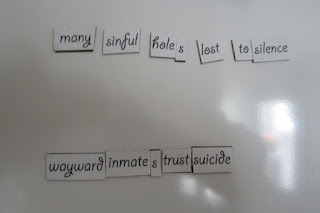 many sinful holes lost to silence
wayward inmates trust suicide